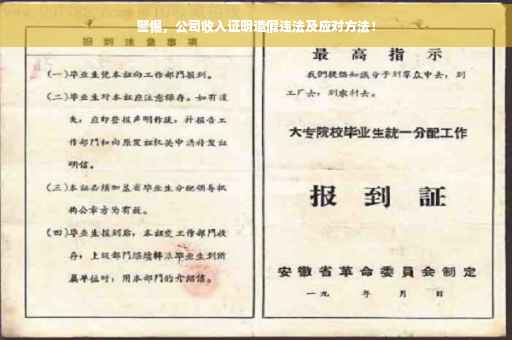 警惕，公司收入证明造假违法及应对方法！
报到注意事项
(一)毕业生凭本证向工作部门报到。
(二)毕业生对本证应注意保存。如有遗
失，应即登报声明作废，并报告工
作部门和向原发证机关申请补发证
明信。
(三)本证必须加盖省毕业生分配领导机
构公章方为有效。
(四)毕业生报到后，本证交工作部门收
存；上级部门继续转派毕业生到所
属单位时，用本部门的介绍信。
最高指示
我们提倡知识分子到群众中去，到
工厂去，到农村去。
大专院校毕业生统一分配工作
报到证
安徽省革命委员会制定
一九 年 月 日